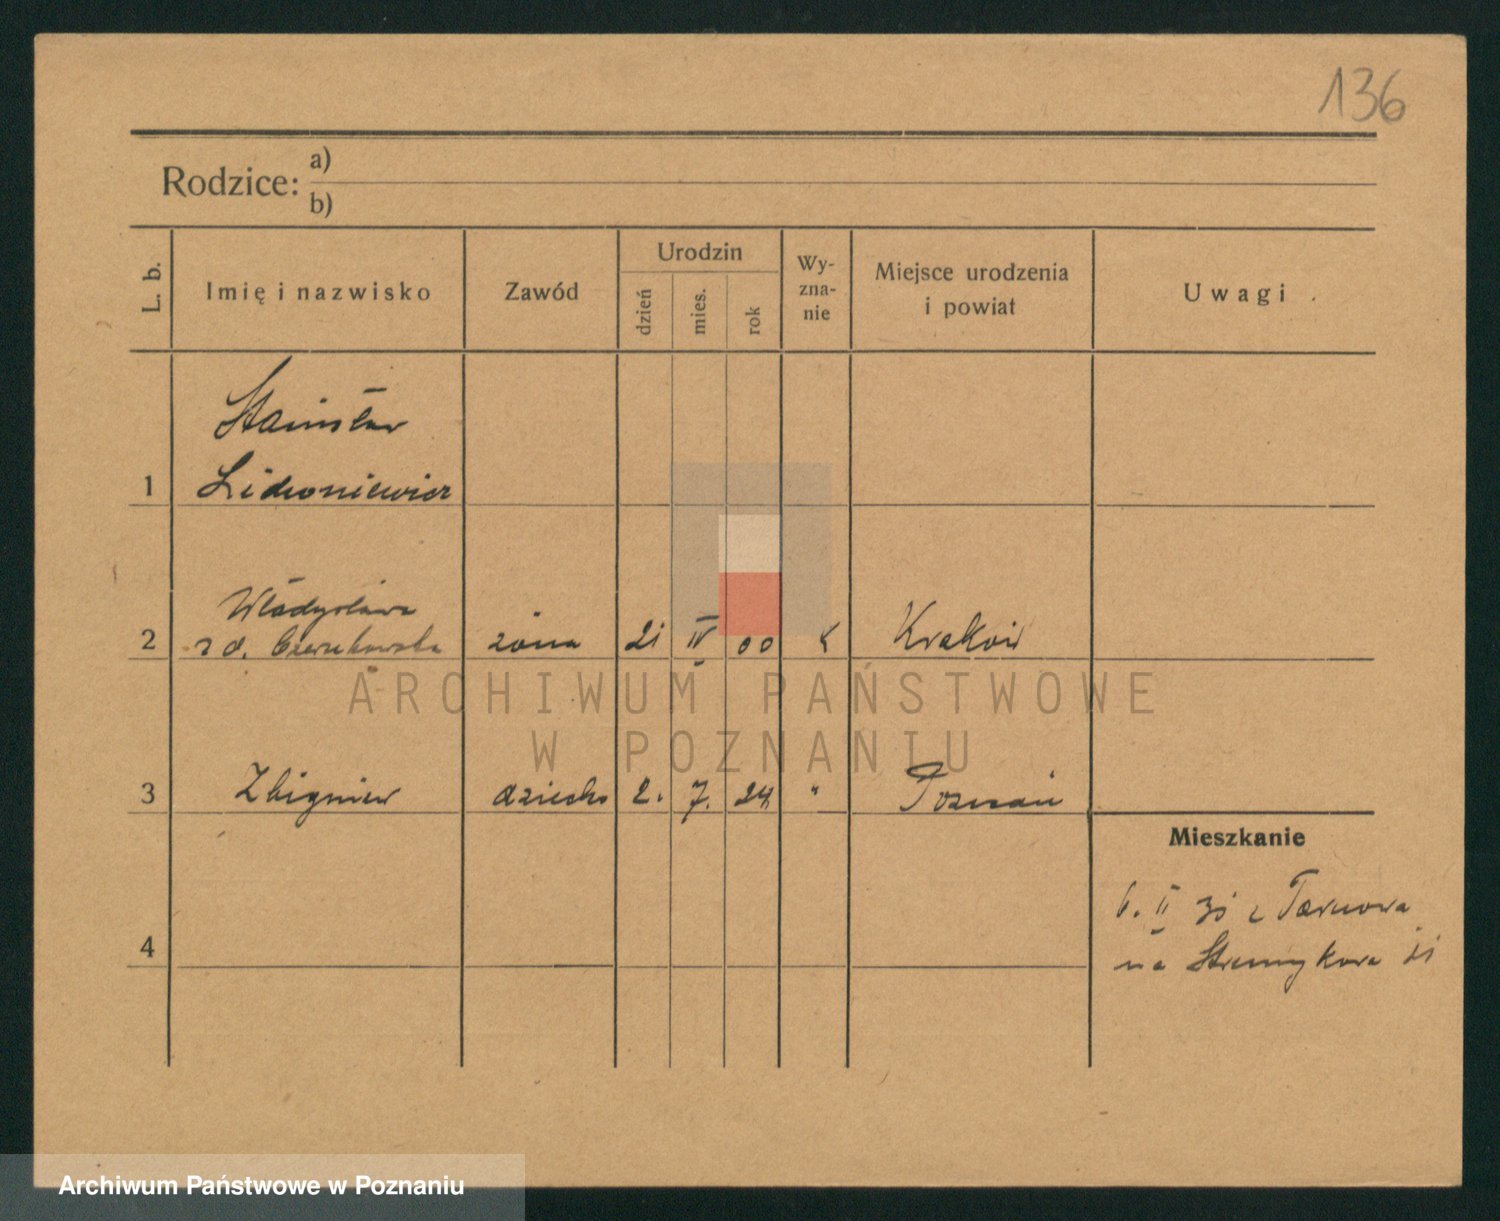 136
Rodzice: a)
b)
L. b.
Imię i nazwisko
Zawód
Urodzin
dzień
mies.
rok
Wy-
zna-
nie
Miejsce urodzenia
i powiat
Uwagi
Stanisław
1
2 Władysława
z d. żona 21 IV 00 Kraków
3 Zbigniew dziecko 2. 7. 24 " Poznań
Mieszkanie
6. II z Tarnowa
4 na
ARCHIWUM PAŃSTWOWE
W POZNANIU
Archiwum Państwowe w Poznaniu